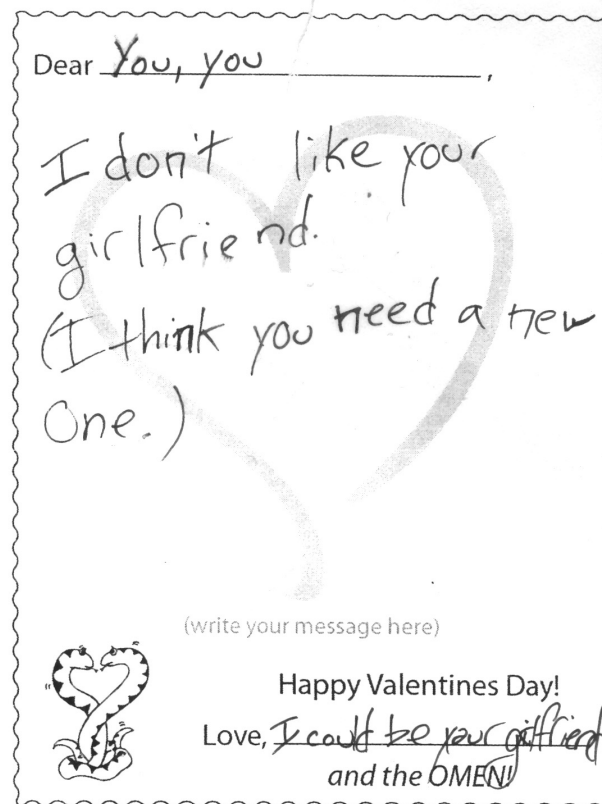 Dear You, you,
I don't like your
girlfriend.
(I think you need a new
One.)
(write your message here)
Happy Valentines Day!
Love, I could be your girlfriend
and the OMEN!